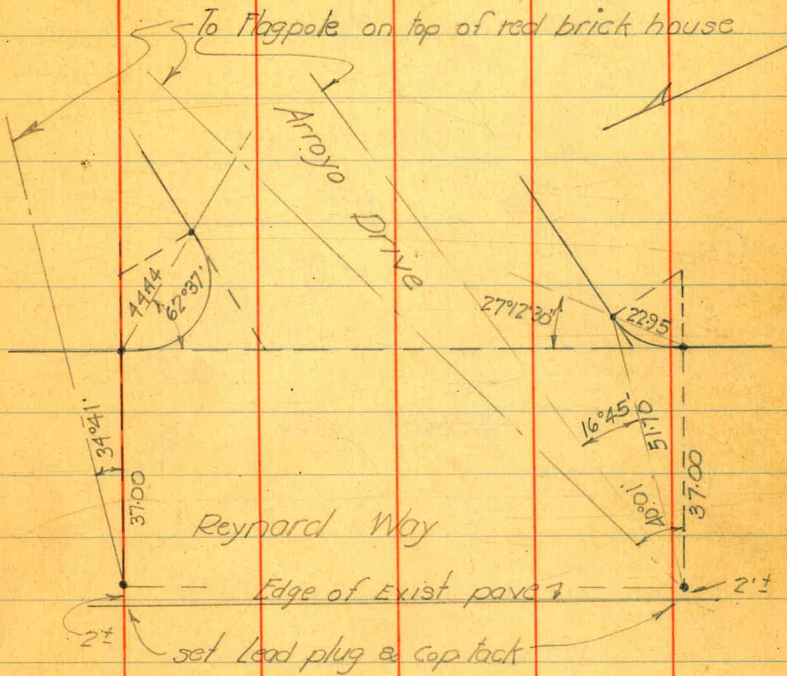 To Flagpole on top of red brick house
Arroyo Drive
44.44
62°37'
27°12'30"
22.95
16°45'
51.70
34°41'
37.00
40°01'
37.00
Reynard Way
Edge of Exist pave
2'±
2'±
set Lead plug & cop. tack